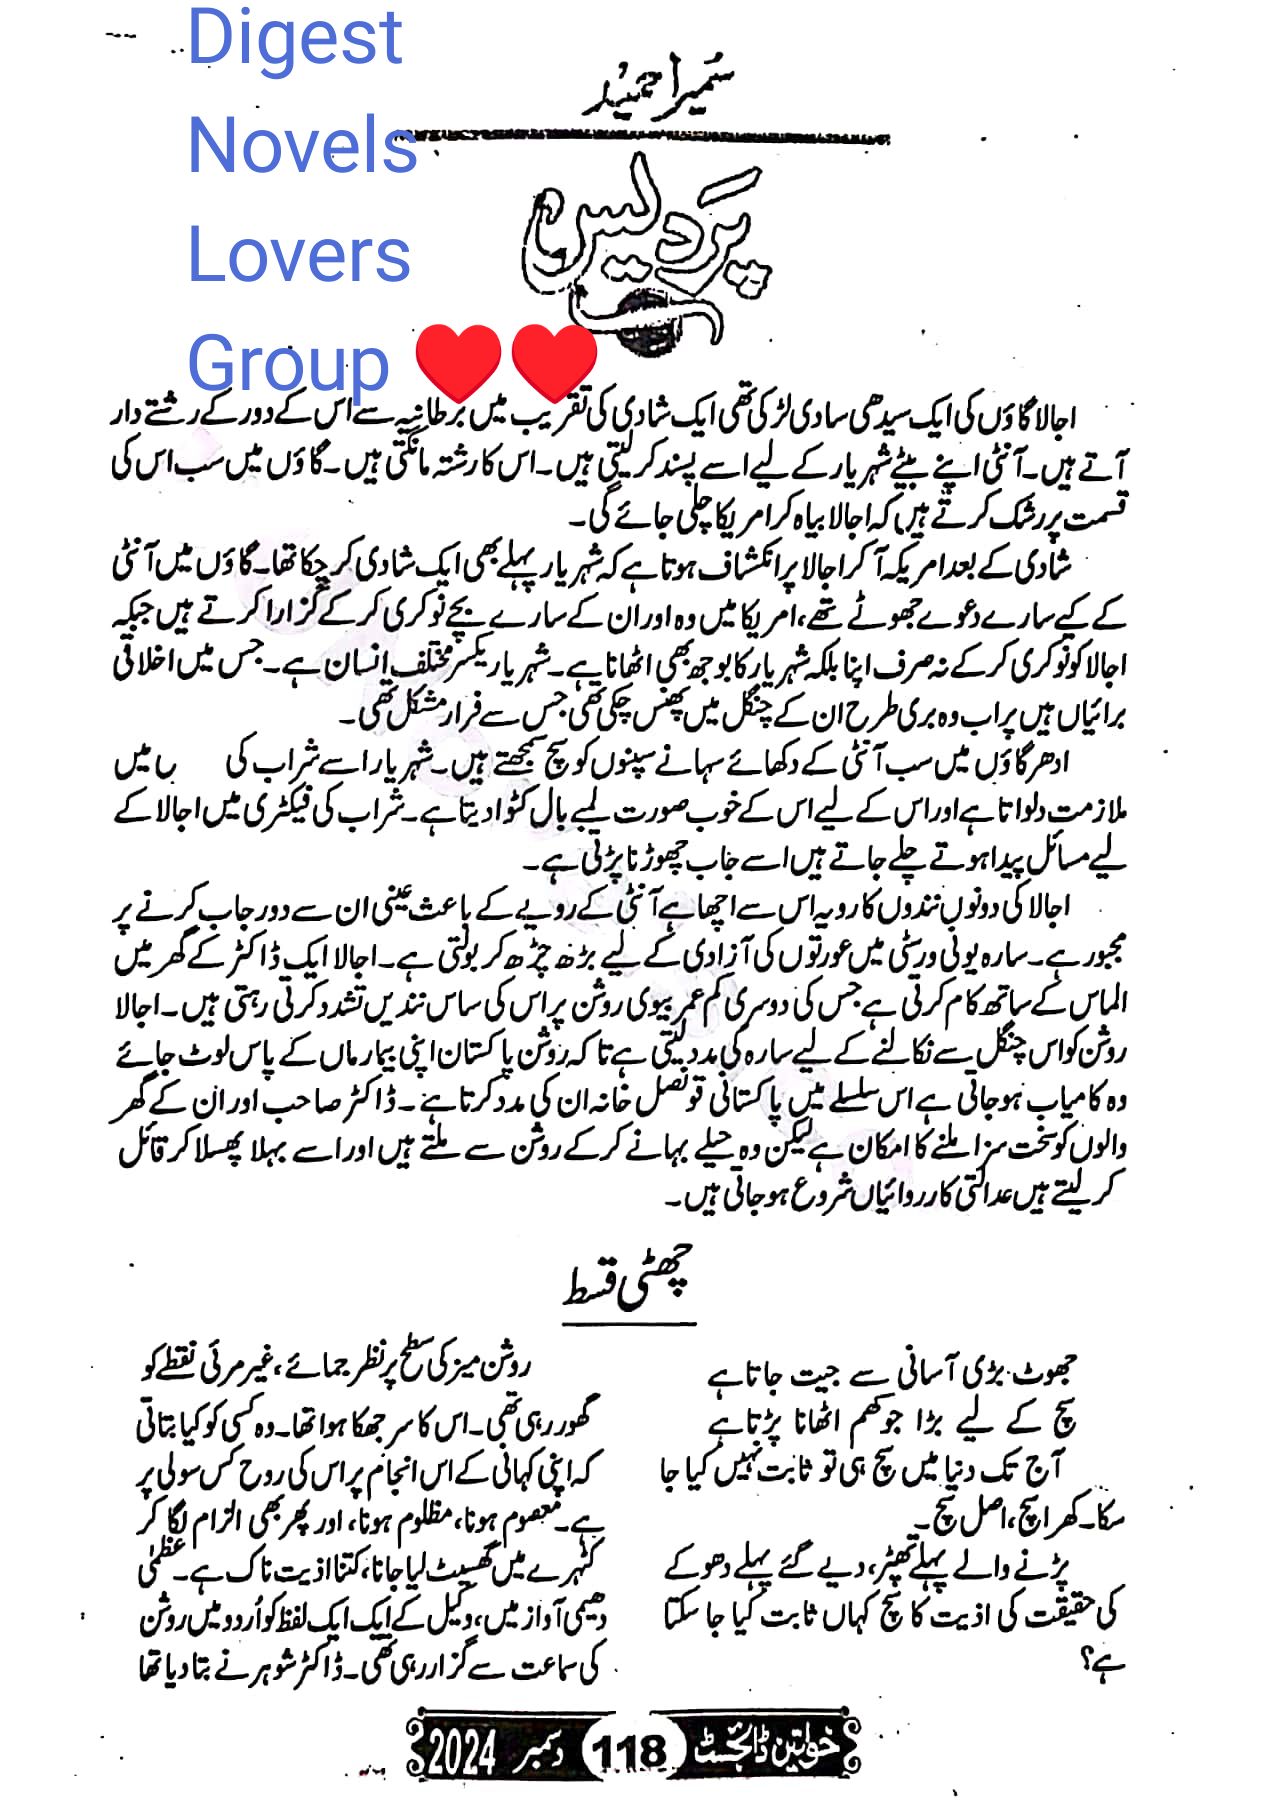 Digest
Novels
Lovers
Group ❤❤
سُمیرا حمید
پَردیس
اجالا گاؤں کی ایک سیدھی سادی لڑکی تھی ایک شادی کی تقریب میں برطانیہ سے اس کے دور کے رشتے دار
آتے ہیں۔ آنٹی اپنے بیٹے شہریار کے لیے اسے پسند کر لیتی ہیں۔ اس کا رشتہ مانگتی ہیں۔ گاؤں میں سب اس کی
قسمت پر رشک کرتے ہیں کہ اجالا بیاہ کر امریکا چلی جائے گی۔
شادی کے بعد امریکہ آ کر اجالا پر انکشاف ہوتا ہے کہ شہریار پہلے بھی ایک شادی کر چکا تھا۔ گاؤں میں آنٹی
کے کیے سارے دعوے جھوٹے تھے، امریکا میں وہ اور ان کے سارے بچے نوکری کر کے گزارا کرتے ہیں جبکہ
اجالا کو نوکری کر کے نہ صرف اپنا بلکہ شہریار کا بوجھ بھی اٹھانا ہے۔ شہریار یکسر مختلف انسان ہے۔ جس میں اخلاقی
برائیاں ہیں پر اب وہ بری طرح ان کے چنگل میں پھنس چکی تھی جس سے فرار مشکل تھی۔
ادھر گاؤں میں سب آنٹی کے دکھائے سہانے سپنوں کو سچ سمجھتے ہیں۔ شہریار اسے شراب کی میں
ملازمت دلواتا ہے اور اس کے لیے اس کے خوب صورت لمبے بال کٹوا دیتا ہے۔ شراب کی فیکٹری میں اجالا کے
لیے مسائل پیدا ہوتے چلے جاتے ہیں اسے جاب چھوڑنا پڑتی ہے۔
اجالا کی دونوں نندوں کا رویہ اس سے اچھا ہے آنٹی کے رویے کے باعث عینی ان سے دور جاب کرنے پر
مجبور ہے۔ سارہ یونی ورسٹی میں عورتوں کی آزادی کے لیے بڑھ چڑھ کر بولتی ہے۔ اجالا ایک ڈاکٹر کے گھر میں
الماس کے ساتھ کام کرتی ہے جس کی دوسری کم عمر بیوی روشن پر اس کی ساس نندیں تشدد کرتی رہتی ہیں۔ اجالا
روشن کو اس چنگل سے نکالنے کے لیے سارہ کی مدد لیتی ہے تا کہ روشن پاکستان اپنی بیمار ماں کے پاس لوٹ جائے
وہ کامیاب ہو جاتی ہے اس سلسلے میں پاکستانی قونصل خانہ ان کی مدد کرتا ہے۔ ڈاکٹر صاحب اور ان کے گھر
والوں کو سخت سزا ملنے کا امکان ہے لیکن وہ حیلے بہانے کر کے روشن سے ملتے ہیں اور اسے بہلا پھسلا کر قائل
کر لیتے ہیں عدالتی کارروائیاں شروع ہو جاتی ہیں۔
چھٹی قسط
جھوٹ بڑی آسانی سے جیت جاتا ہے
سچ کے لیے بڑا جوکھم اٹھانا پڑتا ہے
آج تک دنیا میں سچ ہی تو ثابت نہیں کیا جا
سکا۔ کھرا سچ، اصل سچ۔
پڑنے والے پہلے تھپڑ، دیے گئے پہلے دھوکے
کی حقیقت کی اذیت کا سچ کہاں ثابت کیا جا سکتا
ہے؟
روشن میز کی سطح پر نظر جمائے، غیر مرئی نقطے کو
گھور رہی تھی۔ اس کا سر جھکا ہوا تھا۔ وہ کسی کو کیا بتاتی
کہ اپنی کہانی کے اس انجام پر اس کی روح کس سولی پر
ہے۔ معصوم ہونا، مظلوم ہونا، اور پھر بھی الزام لگا کر
کٹہرے میں گھسیٹ لیا جانا، کتنا اذیت ناک ہے۔ عظمٰی
دھیمی آواز میں، وکیل کے ایک ایک لفظ کو اُردو میں روشن
کی سماعت سے گزار رہی تھی۔ ڈاکٹر شوہر نے بتا دیا تھا
خواتین ڈائجسٹ 118 دسمبر 2024